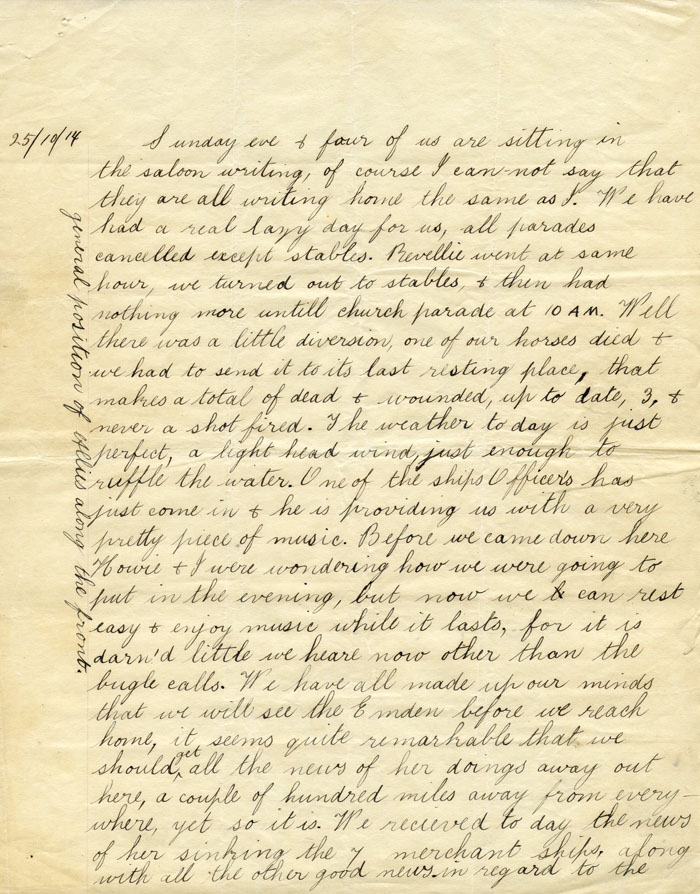 25/10/14
Sunday eve & four of us are sitting in
the saloon writing, of course I can-not say that
they are all writing home the same as I. We have
had a real lazy day for us, all parades
cancelled except stables. Revellie went at same
hour, we turned out to stables, & then had
nothing more untill church parade at 10 AM. Well
there was a little diversion, one of our horses died &
we had to send it to its last resting place, that
makes a total of dead & wounded, up to date, 3, &
never a shot fired. The weather to day is just
perfect, a light head wind, just enough to
ruffle the water. One of the ships Officers has
just come in & he is providing us with a very
pretty piece of music. Before we came down here
Howie & I were wondering how we were going to
put in the evening, but now we can rest
easy & enjoy music while it lasts, for it is
darn'd little we heare now other than the
bugle calls. We have all made up our minds
that we will see the Emden before we reach
home, it seems quite remarkable that we
should get all the news of her doings away out
here, a couple of hundred miles away from every-
where, yet so it is. We recieved to day the news
of her sinking the 7 merchant ships, along
with all the other good news in regard to the
general position of Allies along the front.